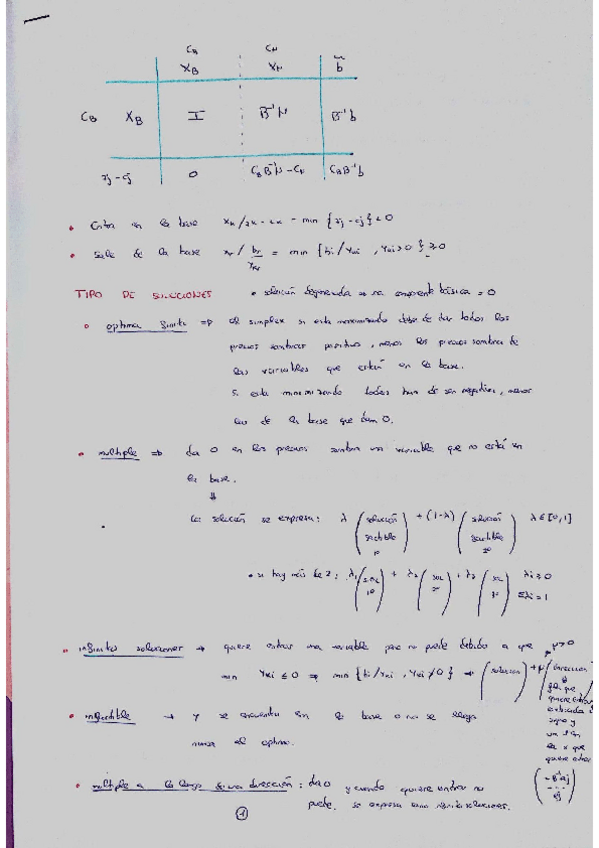 C_B C_N
X_B X_N b̃
C_B X_B I B⁻¹N B⁻¹b
zj - cj 0 C_B B⁻¹N - C_N C_B B⁻¹b
• Entra en la base x_k / z_k - c_k = min {zj - cj} < 0
• Sale de la base x_r / b_r/y_kr = min {bi/y_ki , y_ki > 0} ≥ 0
TIPO DE SOLUCIONES • solución degenerada ⇒ una componente básica = 0
• optima finita ⇒ el simplex si esta maximizando debe de dar todos los
precios sombras positivos, menos los precios sombra de
las variables que están en la base.
Si esta minimizando todos han de ser negativos, menos
los de la base que dan 0.
• multiple ⇒ da 0 en los precios sombra una variable que no está en
la base.
⇓
La solución se expresa: λ (solución factible 1º) + (1-λ) (solución factible 2º) λ ∈ [0,1]
• si hay más de 2: λ₁ (sol 1º) + λ₂ (sol 2º) + λ₃ (sol 3º) λi ≥ 0
Σλi = 1
• infinitas soluciones → quiere entrar una variable pero no puede debido a que μ>0
son y_ki ≤ 0 ⇒ min {bi/y_ki , y_ki ≠ 0} ⇒ (solución) + μ (dirección
⇓
fila que
quiere entrar
y
un 1 en
la x que
quiere entrar
• infactible → y se encuentra en la base o no se llega
nunca al optimo.
• multiple a lo largo de una dirección: da 0 y cuando quiere entrar no
puede. se expresa como infinitas soluciones.
(-B⁻¹aj
---
ej)
1